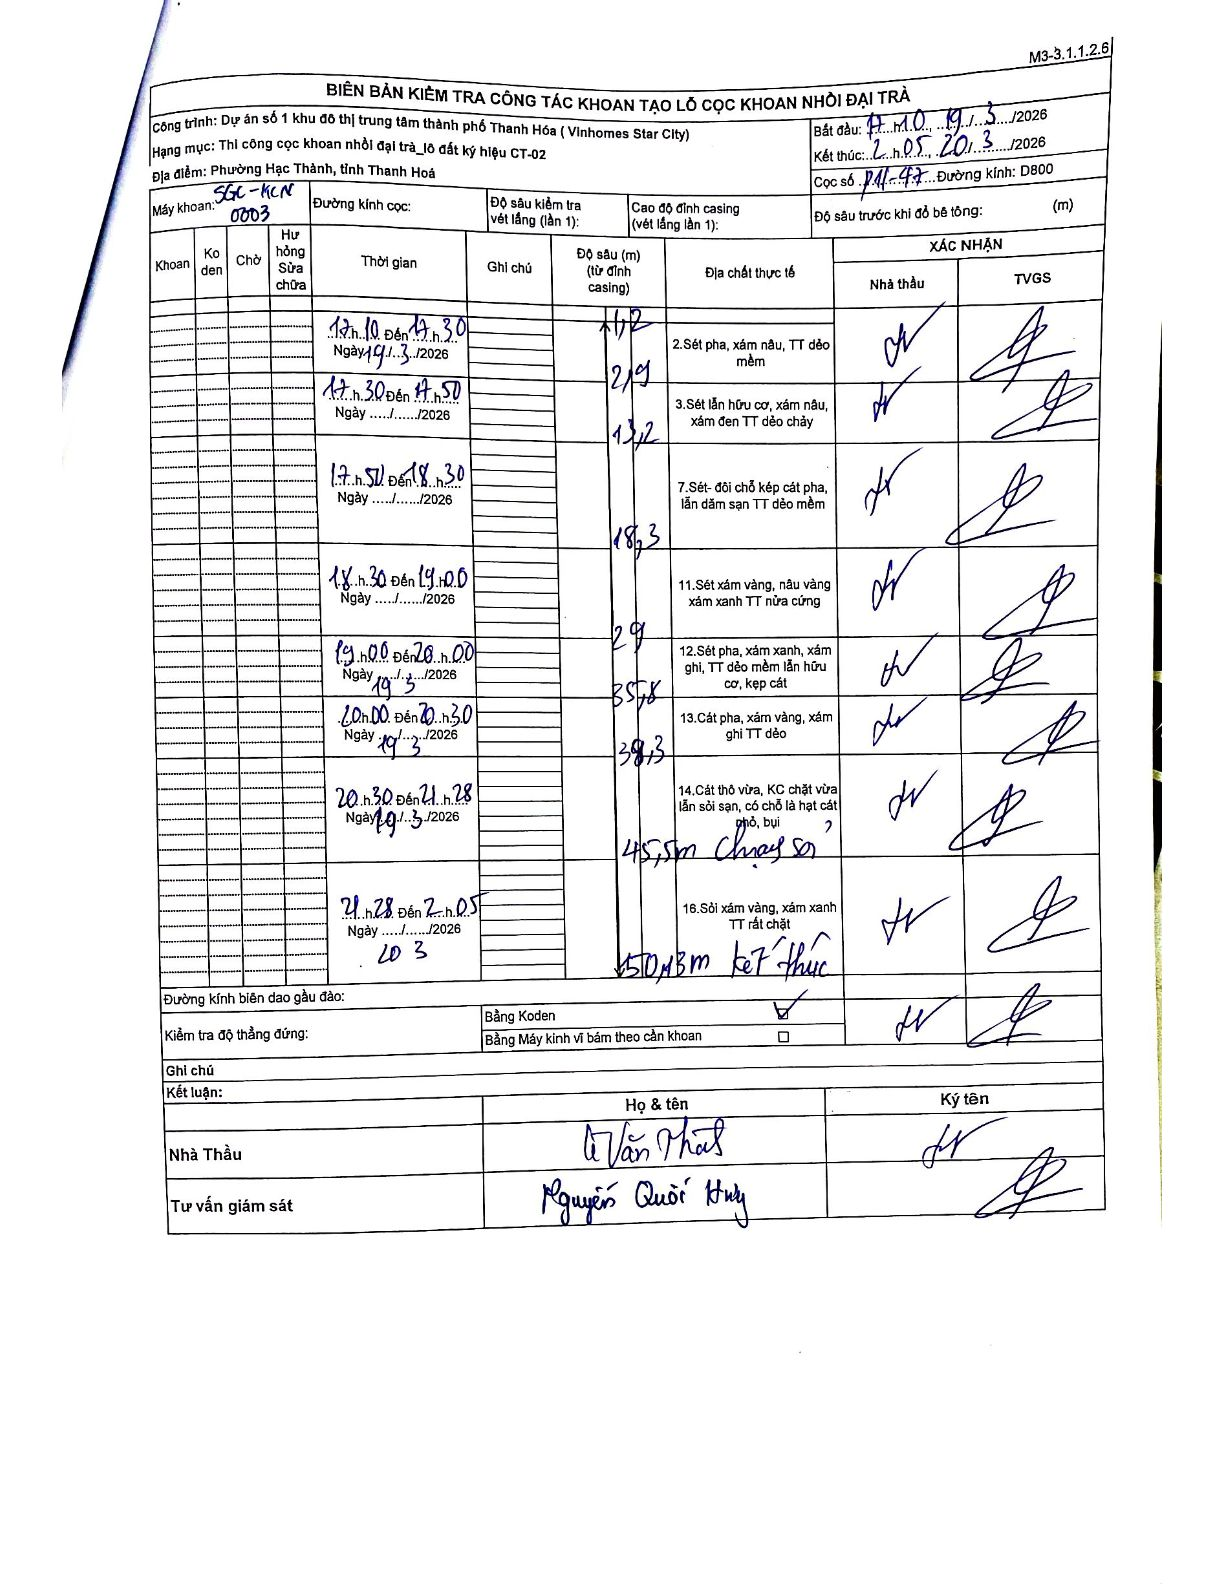 M3-3.1.1.2.6
BIÊN BẢN KIỂM TRA CÔNG TÁC KHOAN TẠO LỖ CỌC KHOAN NHỒI ĐẠI TRÀ
Công trình: Dự án số 1 khu đô thị trung tâm thành phố Thanh Hóa ( Vinhomes Star City)
Hạng mục: Thi công cọc khoan nhồi đại trà_lô đất ký hiệu CT-02
Địa điểm: Phường Hạc Thành, tỉnh Thanh Hoá
Bắt đầu: 17 h 10, 19/3/2026
Kết thúc: 2 h 05, 20/3/2026
Cọc số P11-47 Đường kính: D800
Máy khoan: SGC-KCN 0003
Đường kính cọc:
Độ sâu kiểm tra vét lắng (lần 1):
Cao độ đỉnh casing (vét lắng lần 1):
Độ sâu trước khi đổ bê tông: (m)
Khoan
Ko den
Chờ
Hư hỏng Sửa chữa
Thời gian
Ghi chú
Độ sâu (m) (từ đỉnh casing)
Địa chất thực tế
XÁC NHẬN
Nhà thầu
TVGS
1,2
17.h.10. Đến 17.h.30
Ngày 19/.3../2026
2.Sét pha, xám nâu, TT dẻo mềm
2,9
17..h.30 Đến 17.h.50
Ngày ...../....../2026
3.Sét lẫn hữu cơ, xám nâu, xám đen TT dẻo chảy
13,2
17.h.50 Đến 18.h.30
Ngày ...../....../2026
7.Sét- đôi chỗ kép cát pha, lẫn dăm sạn TT dẻo mềm
18,3
18..h.30 Đến 19.h00
Ngày ...../....../2026
11.Sét xám vàng, nâu vàng xám xanh TT nửa cứng
29
19.h00 Đến 20..h.00
Ngày 19/3/2026
12.Sét pha, xám xanh, xám ghi, TT dẻo mềm lẫn hữu cơ, kẹp cát
35,8
20.h00. Đến 20..h.30
Ngày 19/3/2026
13.Cát pha, xám vàng, xám ghi TT dẻo
39,3
20.h.30 Đến 21.h.28
Ngày 19/..3./2026
14.Cát thô vừa, KC chặt vừa lẫn sỏi sạn, có chỗ là hạt cát nhỏ, bụi
45,5m Chạm sỏi
21.h.28 Đến 2.h.05
Ngày ...../....../2026
20 3
16.Sỏi xám vàng, xám xanh TT rất chặt
50,13m kết thúc
Đường kính biên dao gầu đào:
Kiểm tra độ thẳng đứng:
Bằng Koden ☑
Bằng Máy kinh vĩ bám theo cần khoan ☐
Ghi chú
Kết luận:
Họ & tên
Ký tên
Nhà Thầu
Văn
Tư vấn giám sát
Nguyễn Quốc Huy